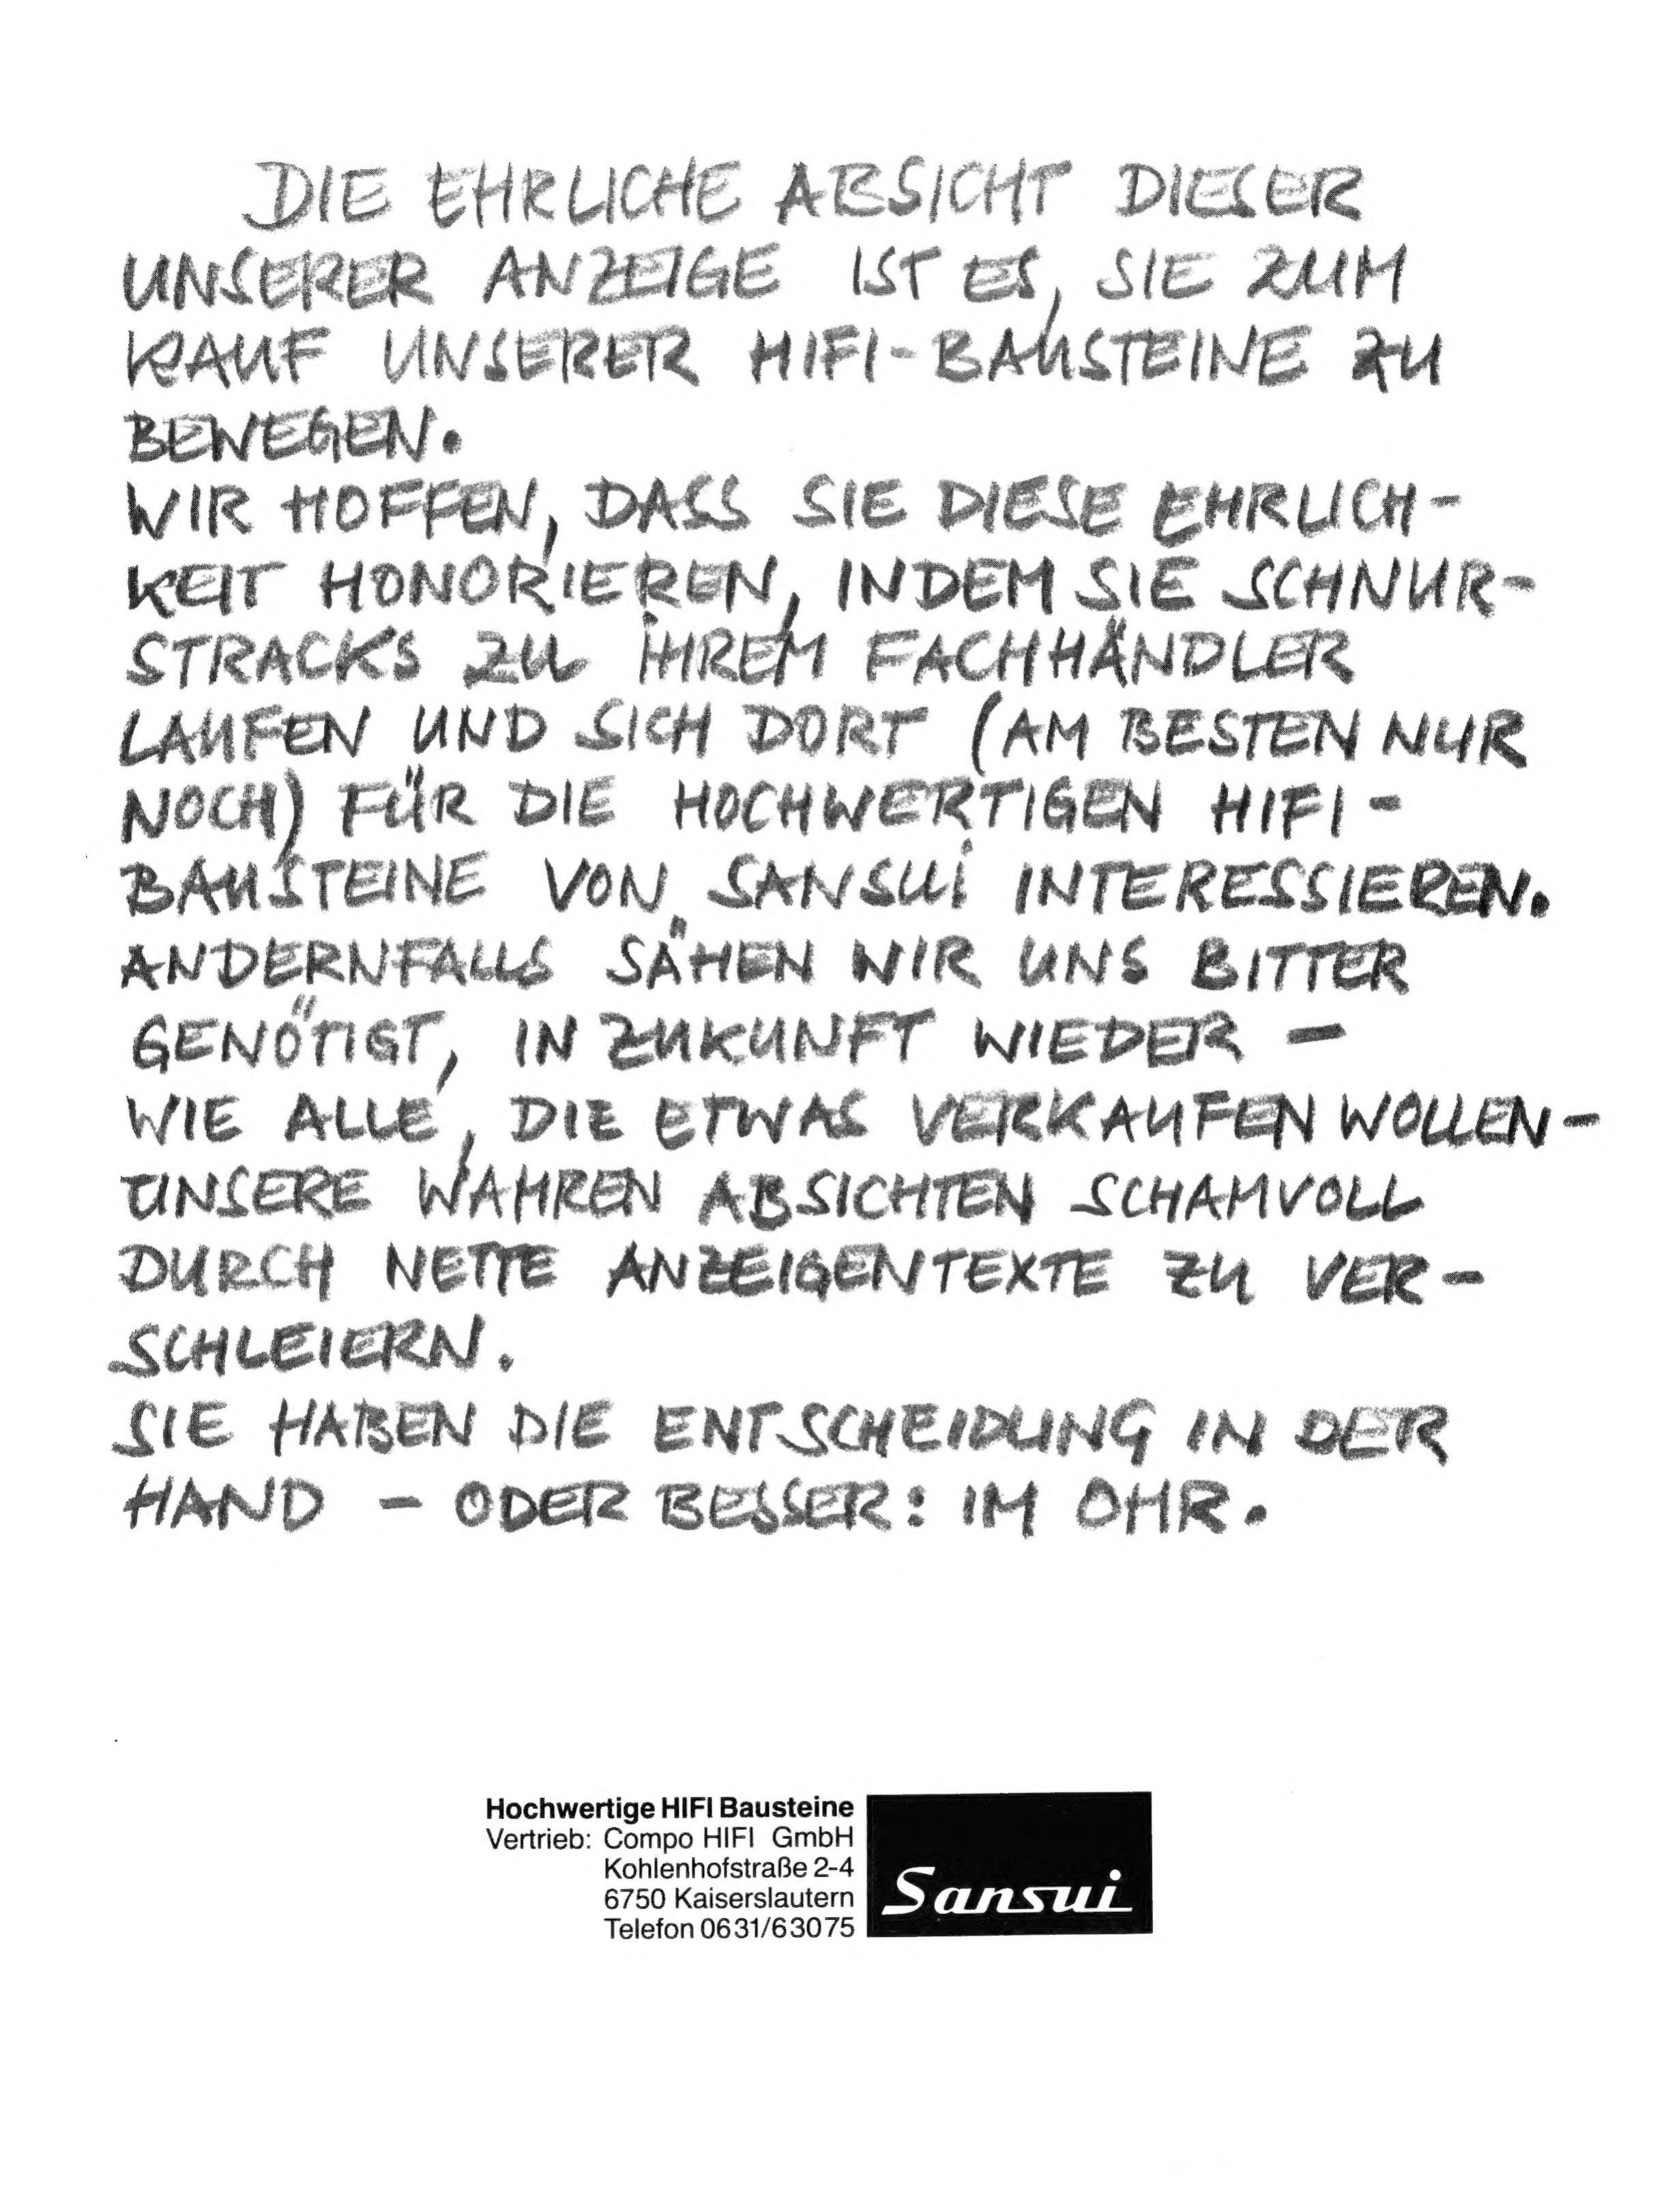 DIE EHRLICHE ABSICHT DIESER
UNSERER ANZEIGE IST ES, SIE ZUM
KAUF UNSERER HIFI-BAUSTEINE ZU
BEWEGEN.
WIR HOFFEN, DASS SIE DIESE EHRLICH-
KEIT HONORIEREN, INDEM SIE SCHNUR-
STRACKS ZU IHREM FACHHÄNDLER
LAUFEN UND SICH DORT (AM BESTEN NUR
NOCH) FÜR DIE HOCHWERTIGEN HIFI-
BAUSTEINE VON SANSUI INTERESSIEREN.
ANDERNFALLS SÄHEN WIR UNS BITTER
GENÖTIGT, IN ZUKUNFT WIEDER –
WIE ALLE, DIE ETWAS VERKAUFEN WOLLEN –
UNSERE WAHREN ABSICHTEN SCHAMVOLL
DURCH NETTE ANZEIGENTEXTE ZU VER-
SCHLEIERN.
SIE HABEN DIE ENTSCHEIDUNG IN DER
HAND – ODER BESSER: IM OHR.
Hochwertige HIFI Bausteine
Vertrieb: Compo HIFI GmbH
Kohlenhofstraße 2-4
6750 Kaiserslautern
Telefon 0631/63075
Sansui